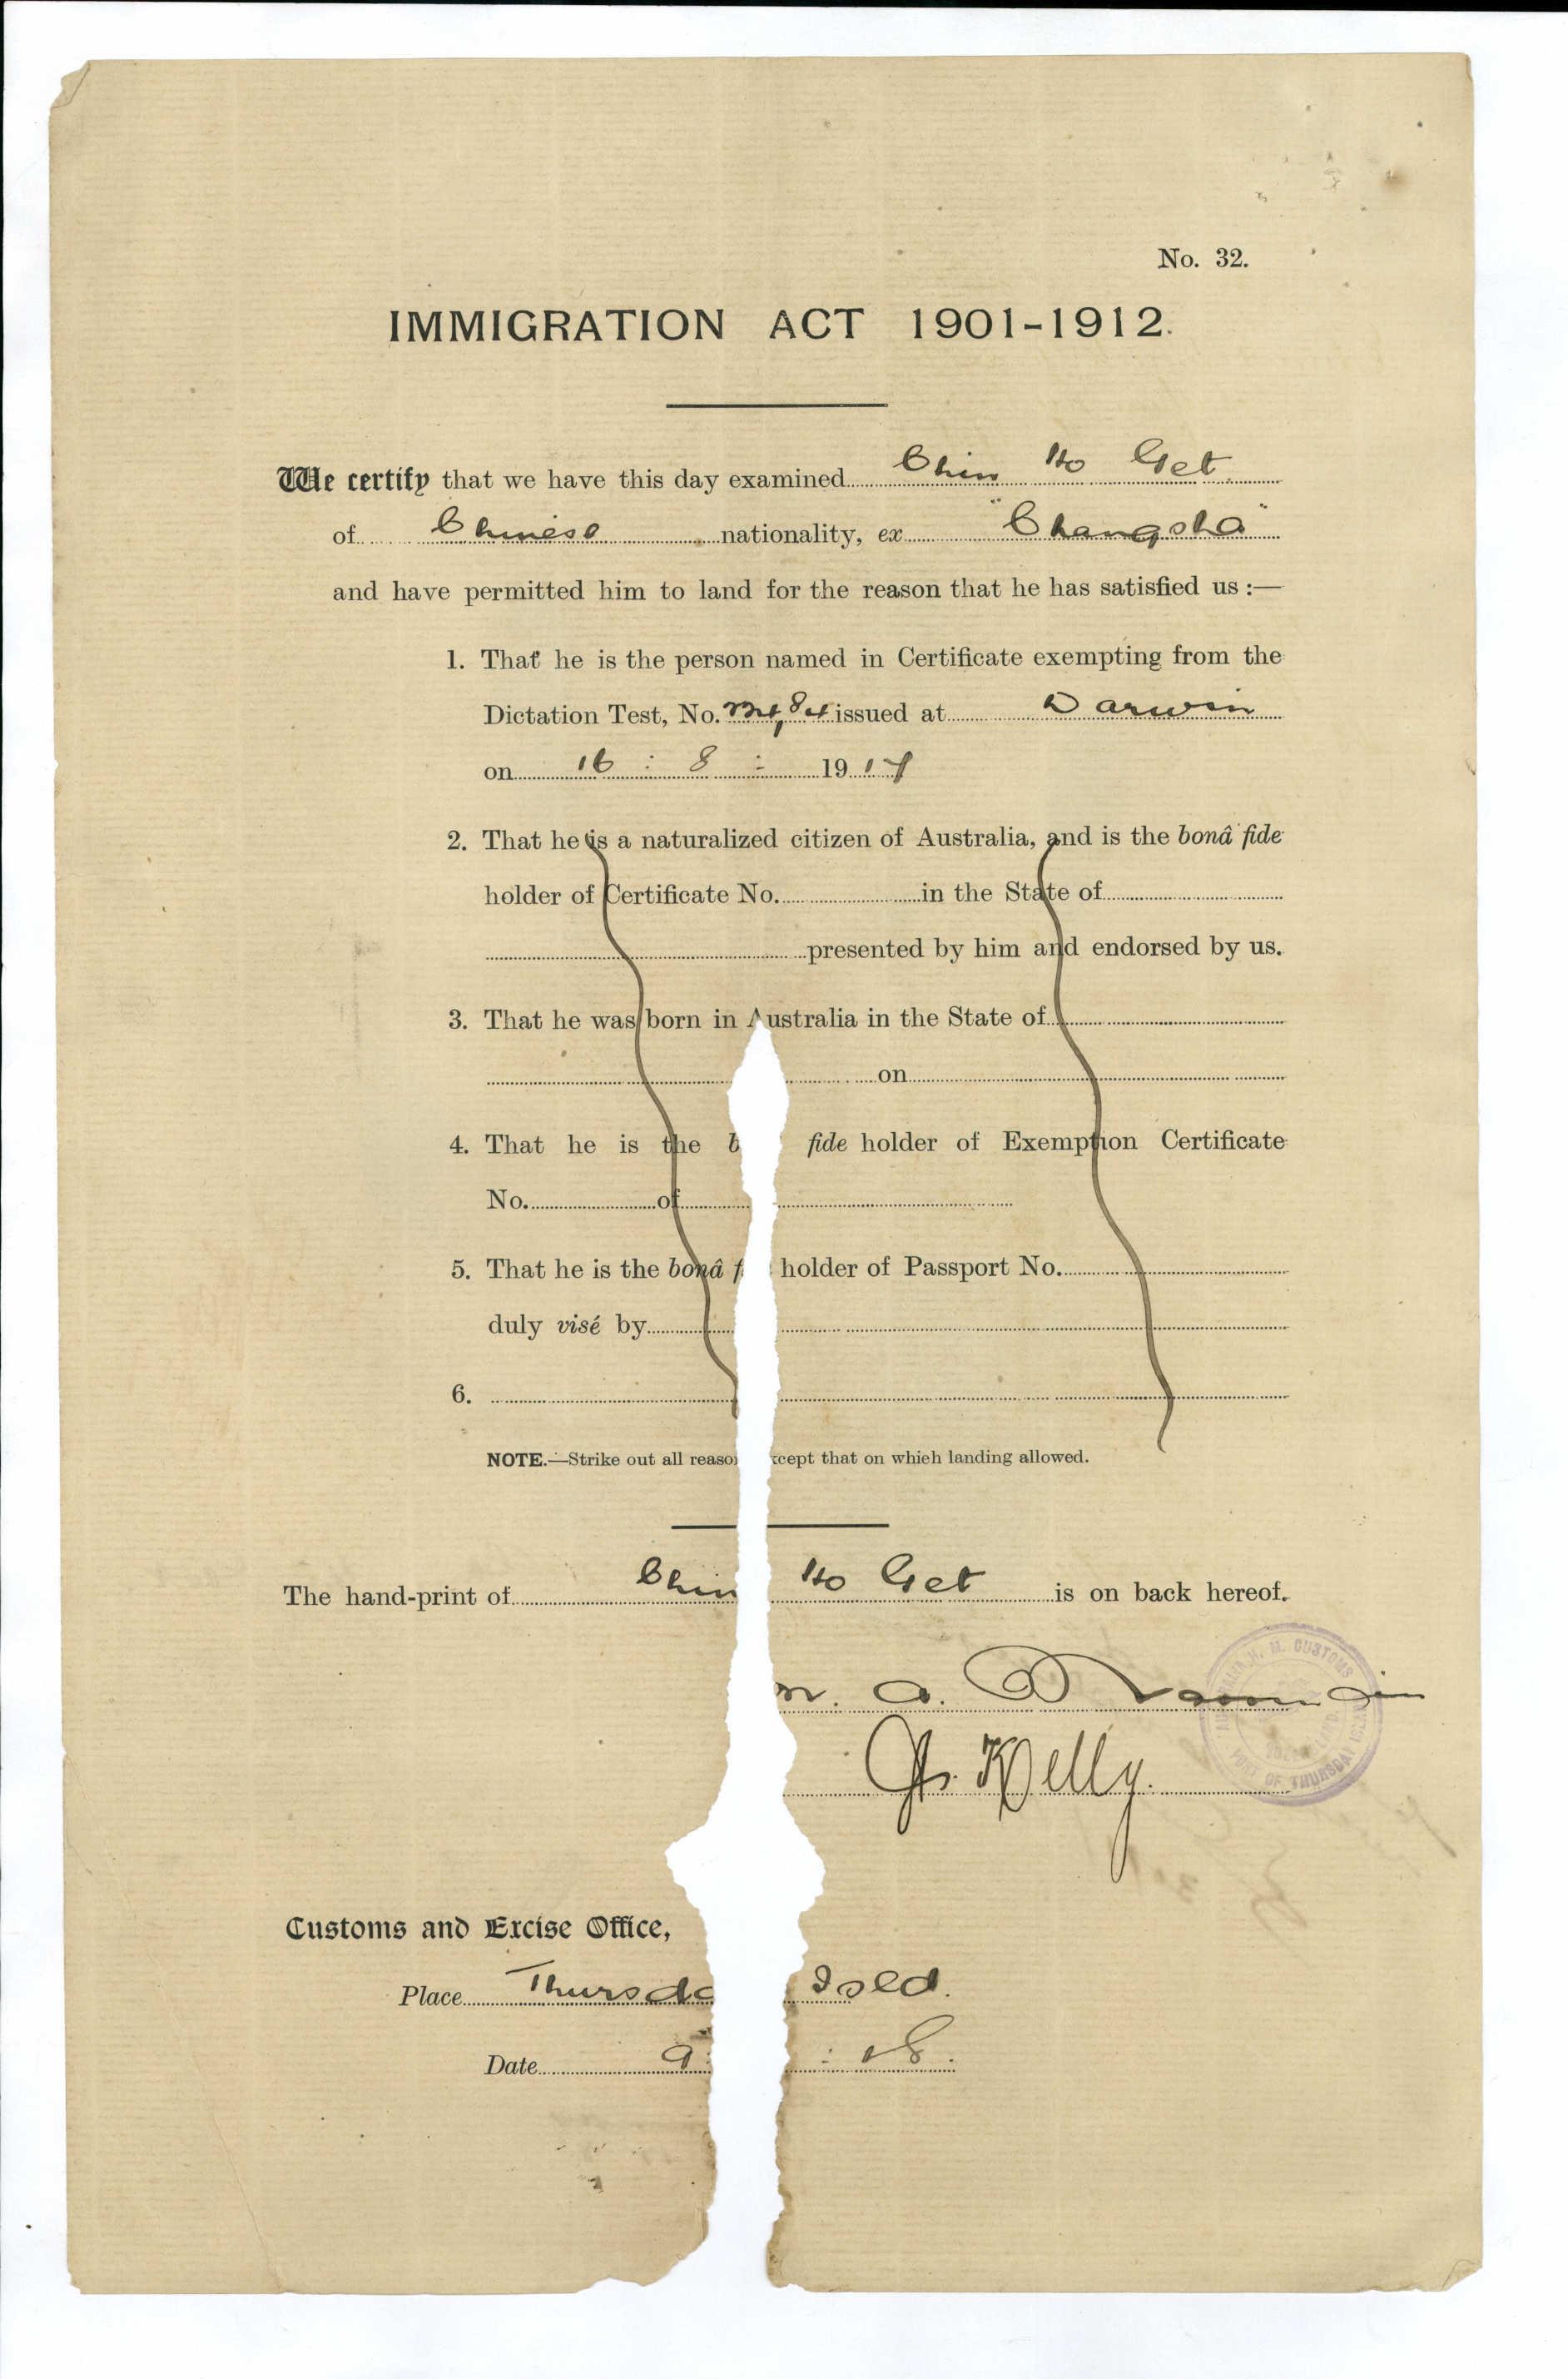 No. 32.
IMMIGRATION ACT 1901-1912.
We certify that we have this day examined Chin Ho Get
of Chinese nationality, ex "Changsha"
and have permitted him to land for the reason that he has satisfied us :—
1. That he is the person named in Certificate exempting from the
Dictation Test, No. issued at Darwin
on 16 : 8 : 1917
2. That he is a naturalized citizen of Australia, and is the bonâ fide
holder of Certificate No. in the State of
presented by him and endorsed by us.
3. That he was born in Australia in the State of
on
4. That he is the b fide holder of Exemption Certificate
No. of
5. That he is the bonâ f holder of Passport No.
duly visé by
6.
NOTE.—Strike out all reaso xcept that on which landing allowed.
The hand-print of Chin Ho Get is on back hereof.
H. M. CUSTOMS
PORT OF THURSDAY ISLAND
Kelly.
Customs and Excise Office,
Place Thursda Isld.
Date 9 : : 18.